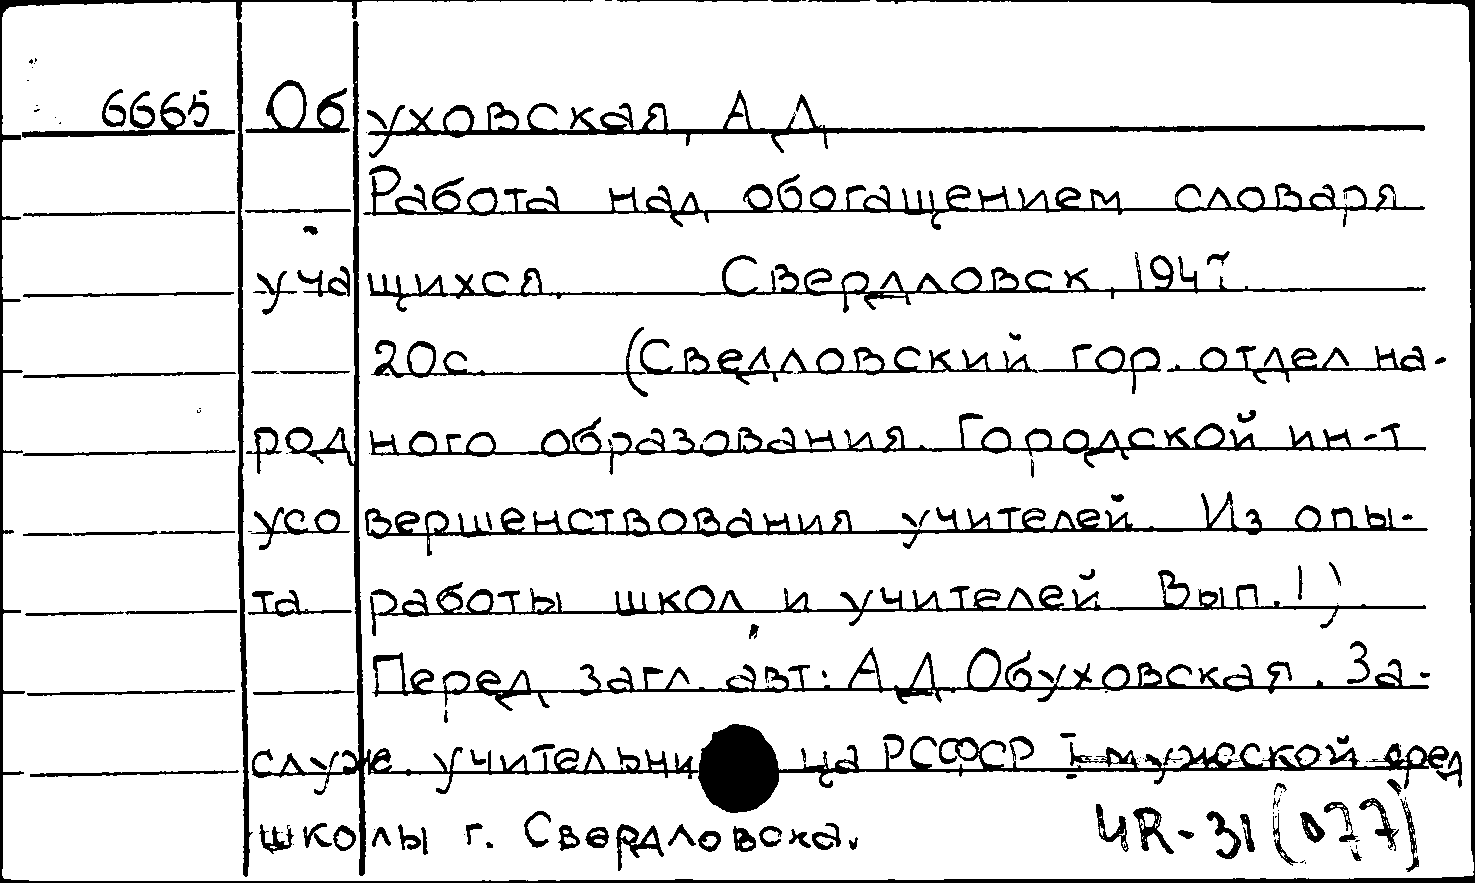 6665 Обуховская, А Д
Работа над обогащением словаря
учащихся. Свердловск, 1947
20с. (Сведловский гор. отдел на-
родного образования. Городской ин-т
усовершенствования учителей. Из опы-
та работы школ и учителей Вып. 1)
Перед загл. авт: А.Д. Обуховская. За-
служ. учительница РСФСР I мужской сред
школы г. Свердловска.
ЧR-31(077)